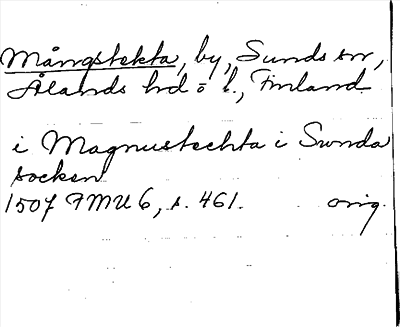 Mångstekta, by, Sunds sn,
Ålands hd o l., Finland.
i Magnustechta i Swnda
socken
1507 FMU 6, s. 461. orig.